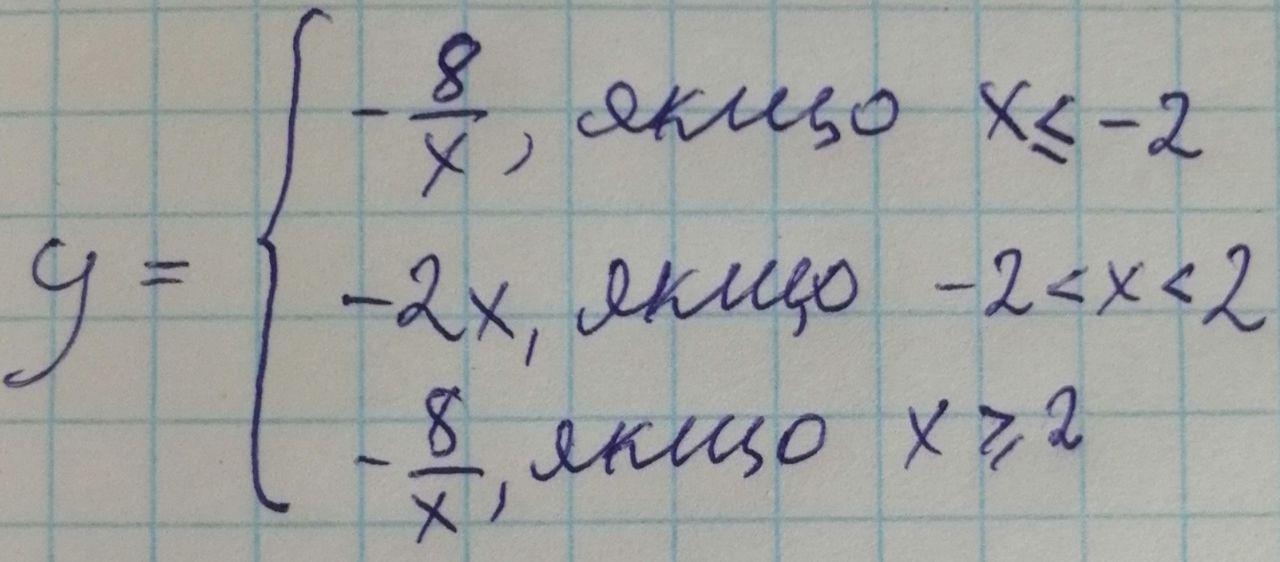 y = { -8/x, якщо x ≤ -2
-2x, якщо -2 < x < 2
-8/x, якщо x ≥ 2